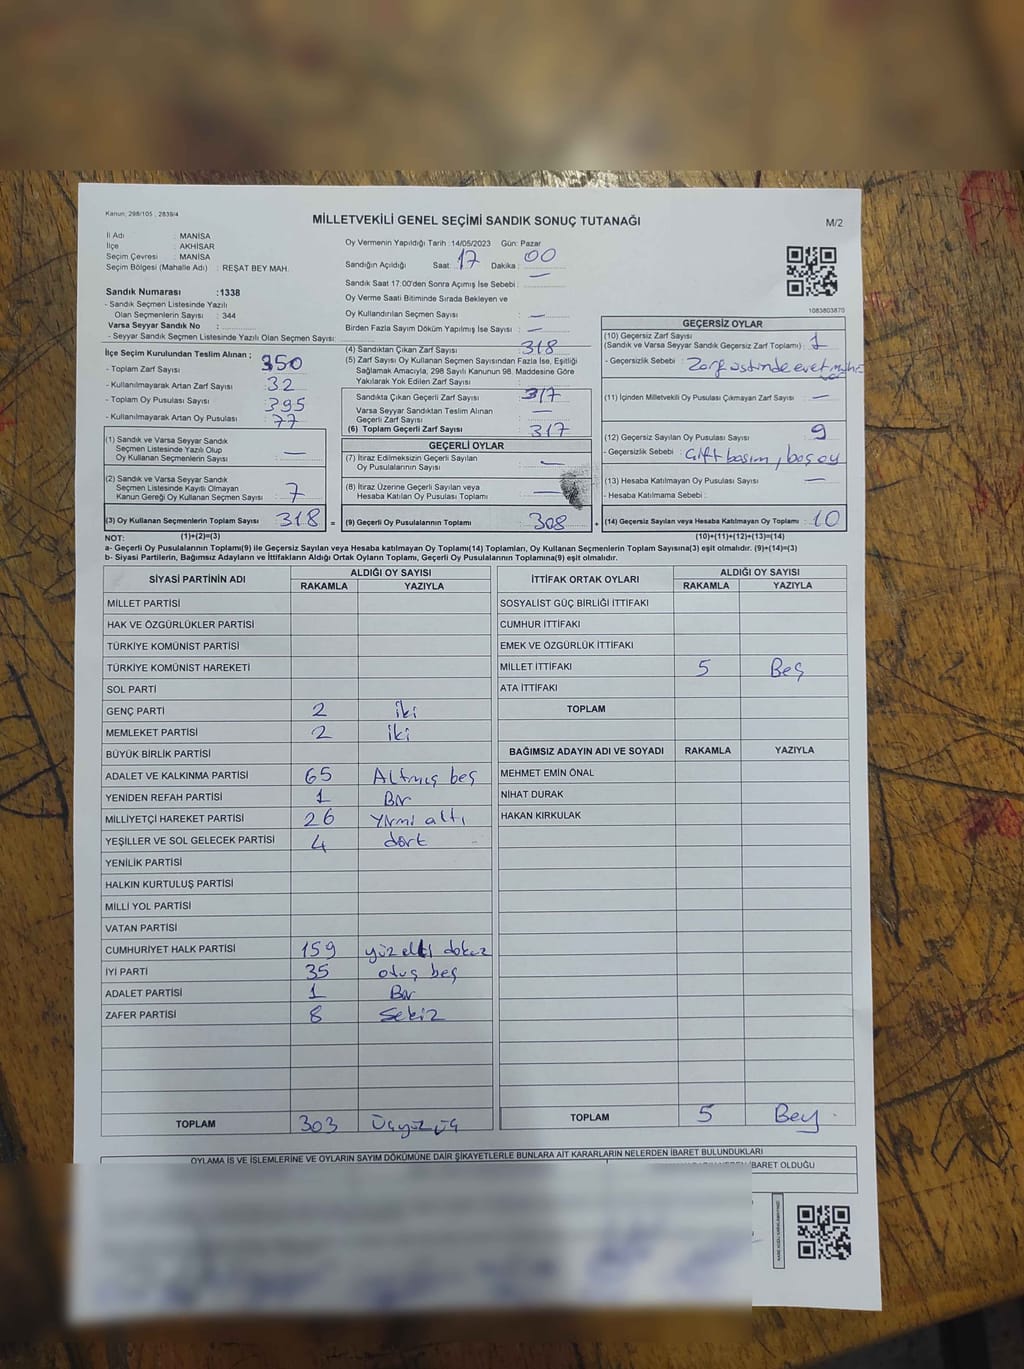 Kanun; 298/105 , 2839/4
MİLLETVEKİLİ GENEL SEÇİMİ SANDIK SONUÇ TUTANAĞI
M/2
İl Adı : MANİSA
İlçe : AKHİSAR
Seçim Çevresi : MANİSA
Seçim Bölgesi (Mahalle Adı) : REŞAT BEY MAH.
Sandık Numarası :1338
- Sandık Seçmen Listesinde Yazılı
Olan Seçmenlerin Sayısı : 344
Varsa Seyyar Sandık No :
- Seyyar Sandık Seçmen Listesinde Yazılı Olan Seçmen Sayısı:
Oy Vermenin Yapıldığı Tarih :14/05/2023 Gün: Pazar
Sandığın Açıldığı Saat: 17 Dakika : 00
Sandık Saat 17:00'den Sonra Açımış İse Sebebi : —
Oy Verme Saati Bitiminde Sırada Bekleyen ve
Oy Kullandırılan Seçmen Sayısı : —
Birden Fazla Sayım Döküm Yapılmış İse Sayısı : —
1083803870
İlçe Seçim Kurulundan Teslim Alınan ;
- Toplam Zarf Sayısı : 350
- Kullanılmayarak Artan Zarf Sayısı : 32
- Toplam Oy Pusulası Sayısı : 395
- Kullanılmayarak Artan Oy Pusulası : 77
(1) Sandık ve Varsa Seyyar Sandık
Seçmen Listesinde Yazılı Olup
Oy Kullanan Seçmenlerin Sayısı : —
(2) Sandık ve Varsa Seyyar Sandık
Seçmen Listesinde Kayıtlı Olmayan
Kanun Gereği Oy Kullanan Seçmen Sayısı : 7
(3) Oy Kullanan Seçmenlerin Toplam Sayısı : 318 =
(4) Sandıktan Çıkan Zarf Sayısı : 318
(5) Zarf Sayısı Oy Kullanan Seçmen Sayısından Fazla İse, Eşitliği
Sağlamak Amacıyla, 298 Sayılı Kanunun 98. Maddesine Göre
Yakılarak Yok Edilen Zarf Sayısı :
Sandıkta Çıkan Geçerli Zarf Sayısı : 317
Varsa Seyyar Sandıktan Teslim Alınan
Geçerli Zarf Sayısı : —
(6) Toplam Geçerli Zarf Sayısı : 317
GEÇERLİ OYLAR
(7) İtiraz Edilmeksizin Geçerli Sayılan
Oy Pusulalarının Sayısı : —
(8) İtiraz Üzerine Geçerli Sayılan veya
Hesaba Katılan Oy Pusulası Toplamı : —
(9) Geçerli Oy Pusulalarının Toplamı : 308 +
GEÇERSİZ OYLAR
(10) Geçersiz Zarf Sayısı
(Sandık ve Varsa Seyyar Sandık Geçersiz Zarf Toplamı) : 1
- Geçersizlik Sebebi : Zarf üstünde evet
(11) İçinden Milletvekili Oy Pusulası Çıkmayan Zarf Sayısı : —
(12) Geçersiz Sayılan Oy Pusulası Sayısı : 9
- Geçersizlik Sebebi : Çift basım, boş oy
(13) Hesaba Katılmayan Oy Pusulası Sayısı : —
- Hesaba Katılmama Sebebi :
(14) Geçersiz Sayılan veya Hesaba Katılmayan Oy Toplamı : 10
NOT: (1)+(2)=(3) (10)+(11)+(12)+(13)=(14)
a- Geçerli Oy Pusulalarının Toplamı(9) ile Geçersiz Sayılan veya Hesaba katılmayan Oy Toplamı(14) Toplamları, Oy Kullanan Seçmenlerin Toplam Sayısına(3) eşit olmalıdır. (9)+(14)=(3)
b- Siyasi Partilerin, Bağımsız Adayların ve İttifakların Aldığı Ortak Oyların Toplamı, Geçerli Oy Pusulalarının Toplamına(9) eşit olmalıdır.
SİYASİ PARTİNİN ADI ALDIĞI OY SAYISI
RAKAMLA YAZIYLA
MİLLET PARTİSİ
HAK VE ÖZGÜRLÜKLER PARTİSİ
TÜRKİYE KOMÜNİST PARTİSİ
TÜRKİYE KOMÜNİST HAREKETİ
SOL PARTİ
GENÇ PARTİ 2 iki
MEMLEKET PARTİSİ 2 iki
BÜYÜK BİRLİK PARTİSİ
ADALET VE KALKINMA PARTİSİ 65 Altmış beş
YENİDEN REFAH PARTİSİ 1 Bir
MİLLİYETÇİ HAREKET PARTİSİ 26 Yirmi altı
YEŞİLLER VE SOL GELECEK PARTİSİ 4 dört
YENİLİK PARTİSİ
HALKIN KURTULUŞ PARTİSİ
MİLLİ YOL PARTİSİ
VATAN PARTİSİ
CUMHURİYET HALK PARTİSİ 159 yüz elli dokuz
İYİ PARTİ 35 otuz beş
ADALET PARTİSİ 1 Bir
ZAFER PARTİSİ 8 Sekiz
TOPLAM 303 Üçyüz üç
İTTİFAK ORTAK OYLARI ALDIĞI OY SAYISI
RAKAMLA YAZIYLA
SOSYALİST GÜÇ BİRLİĞİ İTTİFAKI
CUMHUR İTTİFAKI
EMEK VE ÖZGÜRLÜK İTTİFAKI
MİLLET İTTİFAKI 5 Beş
ATA İTTİFAKI
TOPLAM
BAĞIMSIZ ADAYIN ADI VE SOYADI RAKAMLA YAZIYLA
MEHMET EMİN ÖNAL
NİHAT DURAK
HAKAN KIRKULAK
TOPLAM 5 Beş
OYLAMA İŞ VE İŞLEMLERİNE VE OYLARIN SAYIM DÖKÜMÜNE DAİR ŞİKAYETLERLE BUNLARA AİT KARARLARIN NELERDEN İBARET BULUNDUKLARI
İBARET OLDUĞU